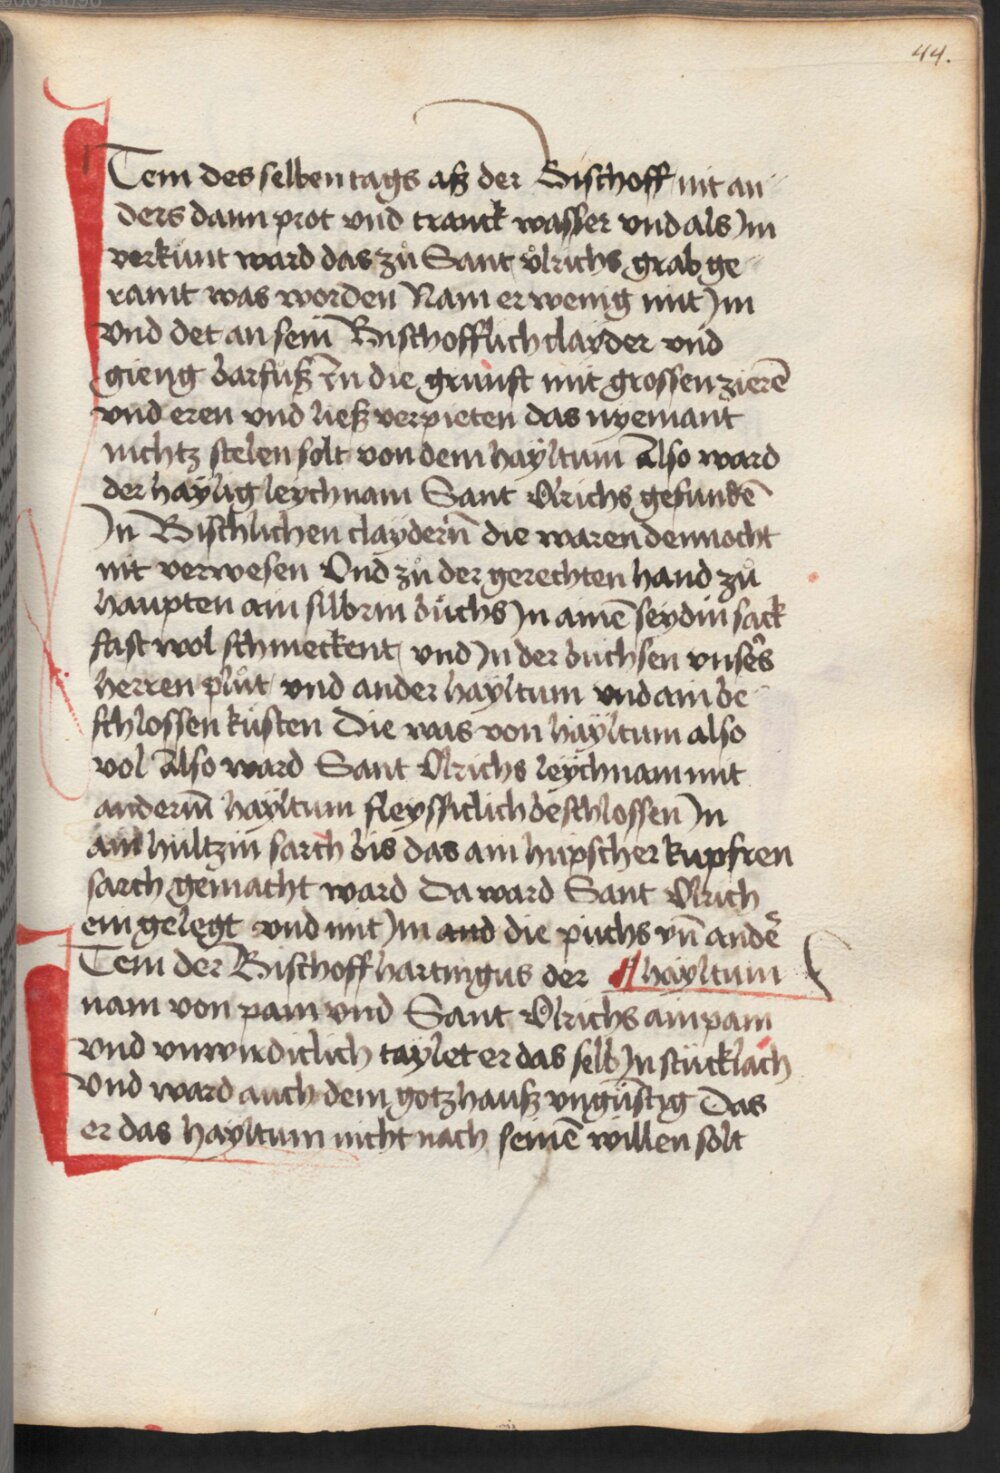 44.
Item des selben tags aß der Bischoff nit an
ders dann prot vnd tranck wasser vnd als Jm
verkünt ward das zů Sant vͦlrichs grab ge
ramt was worden Nam er wenig mit Jm
vnd det an sein Bischofflich clayder vnd
gieng barfuß Jn die grunft mit grossen zierē
vnd eren vnd ließ verpieten das nyemant
nichtz stelen solt von dem hayltum Also ward
der haylig leychnam Sant Vlrichs gefundē
Jn Bischlichen claydern̄ die waren dennocht
nit verwesen Vnd zů der gerechten hand zů
haupten ain silbrin büchs Jn ainē seydin sack
fast wol schmeckent vnd Jn der buchsen vnsers
herren plůt vnd ander hayltum vnd ain be
schlossen küsten Die was von hayltum also
vol Also ward Sant Vlrichs leychnam mit
anderm̄ hayltum fleyssiclich beschlossen Jn
ain hültzin sarch bis das ain hüpscher kupfren
sarch gemacht ward Da ward Sant Vlrich
ein gelegt vnd mit Jm and die püchs vn̄ander
hayltum
Item der Bischoff hartingus der
nam von pam vnd Sant Vlrichs ain pam
vnd vnwirdiclich taylet er das selb Jn stücklach
vnd ward auch dem gotzhauß vngünstig Das
er das hayltum nicht nach seinē willen solt